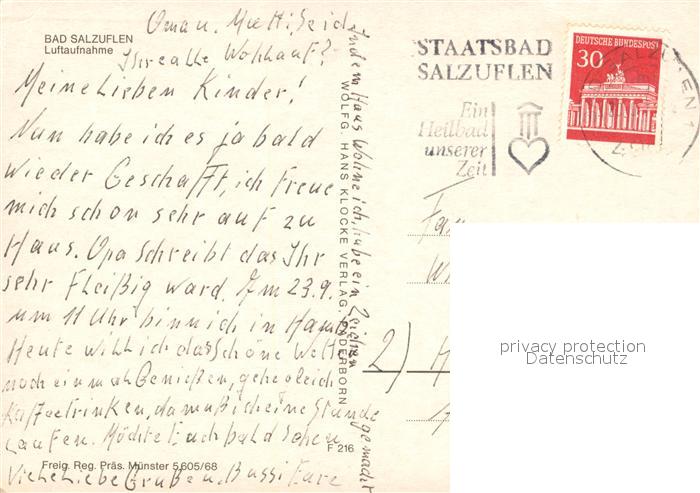 BAD SALZUFLEN
Luftaufnahme
Oma u. Mutti Seid
Ihr alle Wohlauf?
Meine Lieben Kinder!
Nun habe ich es ja bald
wieder Geschafft, ich Freue
mich schon sehr auf zu
Haus. Opa schreibt das Ihr
sehr Fleißig ward. Am 23.9.
um 11 Uhr bin ich in Hambg
Heute will ich das schöne Wetter
noch einmal Genießen, gehe gleich
Kaffeetrinken, da muß ich eine Stunde
Laufen. Möchte Euch bald sehen
Viele Liebe Grüße u. Bussi Eure
Freig. Reg. Präs. Münster 5605/68
F 216
In dem Haus Wohne ich, habe ein Zeichen gemacht
WOLFG. HANS KLOCKE VERLAG, PADERBORN
STAATSBAD
SALZUFLEN
Ein
Heilbad
unserer
Zeit
DEUTSCHE BUNDESPOST
30
SALZUFLEN 1
Fam
W
2) H
privacy protection
Datenschutz